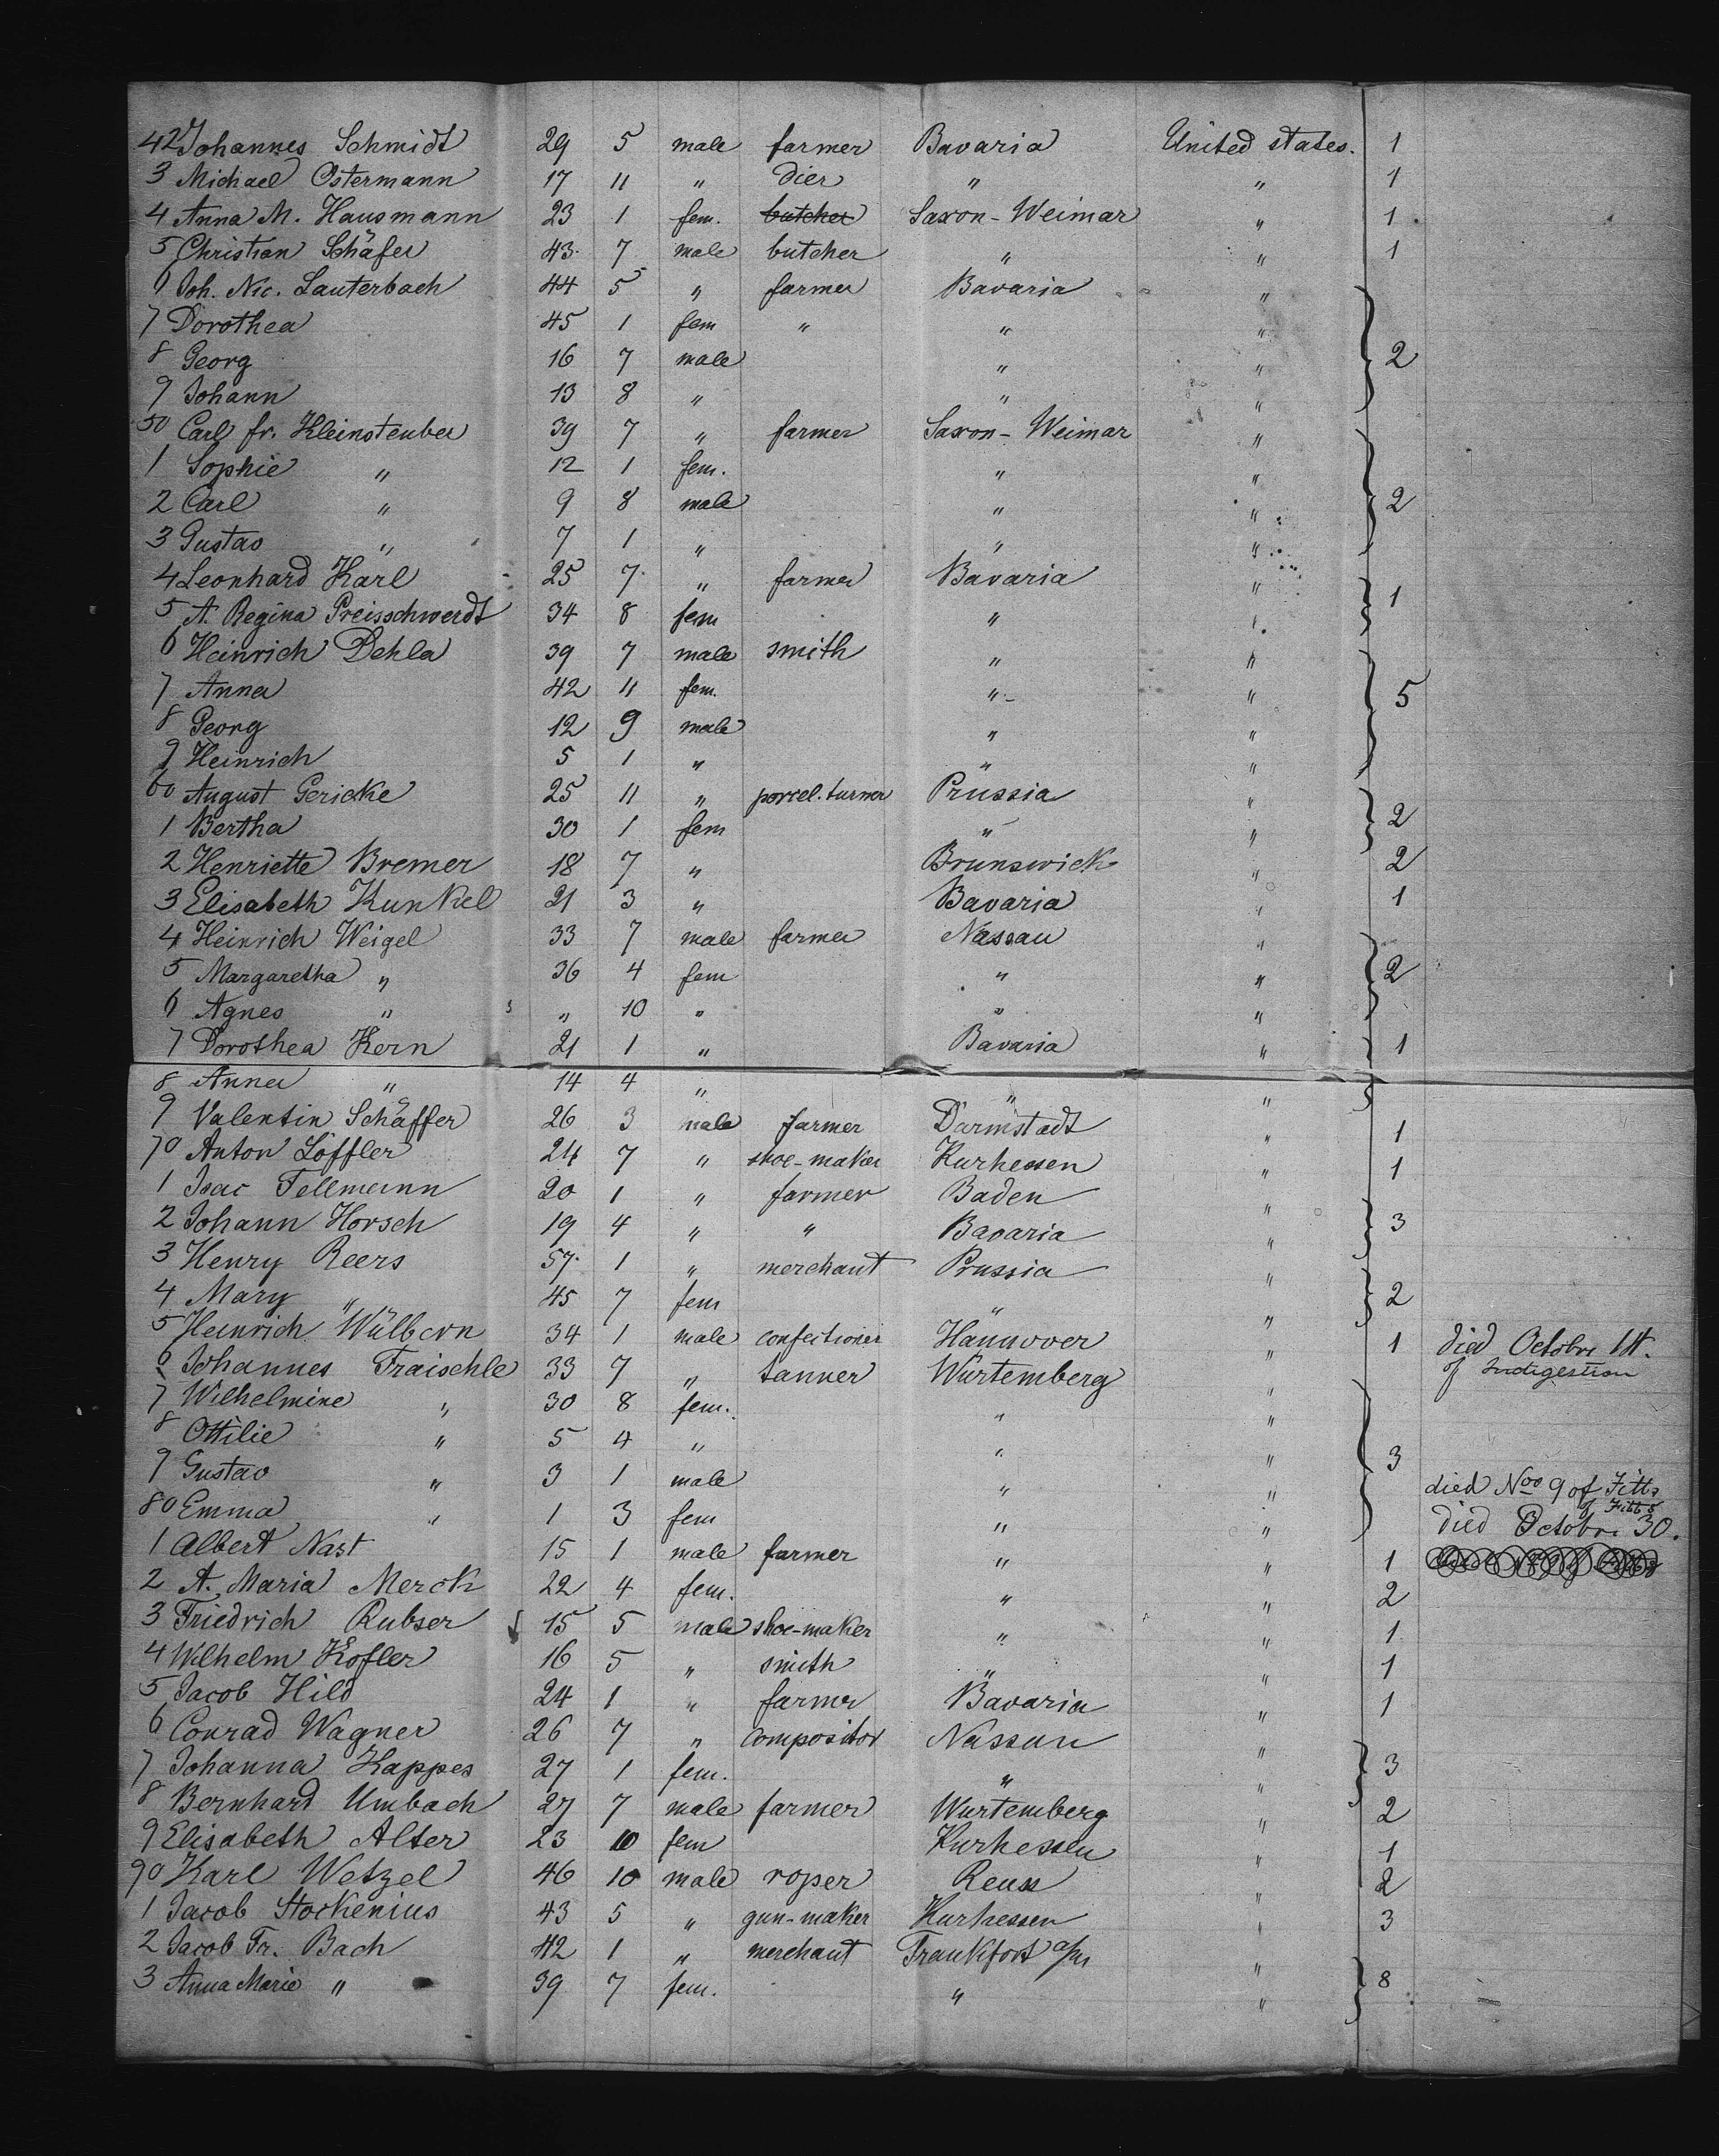 42 Johannes Schmidt 29 5 male farmer Bavaria United states. 1
3 Michael Ostermann 17 11 " dier " " 1
4 Anna M. Hausmann 23 1 fem. butcher Saxon-Weimar " 1
5 Christian Schäfer 43 7 male butcher " " 1
6 Joh. Nic. Lauterbach 44 5 " farmer Bavaria "
7 Dorothea 45 1 fem " " "
8 Georg 16 7 male " " 2
9 Johann 13 8 " " "
50 Carl fr. Kleinsteuber 39 7 " farmer Saxon-Weimar "
1 Sophie " 12 1 fem. " "
2 Carl " 9 8 male " " 2
3 Gustav " 7 1 " " "
4 Leonhard Karl 25 7 " farmer Bavaria " 1
5 A. Regina Preisschwerdt 34 8 fem "
6 Heinrich Dehla 39 7 male smith " "
7 Anna 42 11 fem. " " 5
8 Georg 12 9 male " "
9 Heinrich 5 1 " " "
60 August Gericke 25 11 " porcel. turner Prussia " 2
1 Bertha 30 1 fem " "
2 Henriette Bremer 18 7 " Brunswick " 2
3 Elisabeth Kunkel 21 3 " Bavaria " 1
4 Heinrich Weigel 33 7 male farmer Nassau "
5 Margaretha " 36 4 fem " " 2
6 Agnes " " 10 " " "
7 Dorothea Kern 21 1 " Bavaria " 1
8 Anna " 14 4 " " "
9 Valentin Schäffer 26 3 male farmer Darmstadt " 1
70 Anton Löffler 24 7 " shoe-maker Kurhessen " 1
1 Isac Tellmann 20 1 " farmer Baden "
2 Johann Horsch 19 4 " " Bavaria " 3
3 Henry Reers 57 1 " merchant Prussia "
4 Mary " 45 7 fem " " 2
5 Heinrich Wülbern 34 1 male confectioner Hannover " 1 died Octobre 1st.
6 Johannes Fraischle 33 7 " tanner Würtemberg " of Indigestion
7 Wilhelmine " 30 8 fem. " "
8 Ottilie " 5 4 " " " 3
9 Gustav " 3 1 male " " died Nov 9 of Fitts
80 Emma " 1 3 fem " " died Octobre 30. of Fitts
1 Albert Nast 15 1 male farmer " " 1
2 A. Maria Merck 22 4 fem. " " 2
3 Friedrich Rubser 15 5 male shoe-maker " " 1
4 Wilhelm Kofler 16 5 " smith " " 1
5 Jacob Hild 24 1 " farmer Bavaria " 1
6 Conrad Wagner 26 7 " compositor Nassau "
7 Johanna Kappes 27 1 fem. " " 3
8 Bernhard Umbach 27 7 male farmer Würtemberg " 2
9 Elisabeth Alter 23 10 fem Kurhessen " 1
90 Karl Wetzel 46 10 male roper Reuss " 2
1 Jacob Stockenius 43 5 " gun-maker Kurhessen " 3
2 Jacob Fr. Bach 42 1 " merchant Frankfort a/m "
3 Anna Marie " 39 7 fem. " " 8